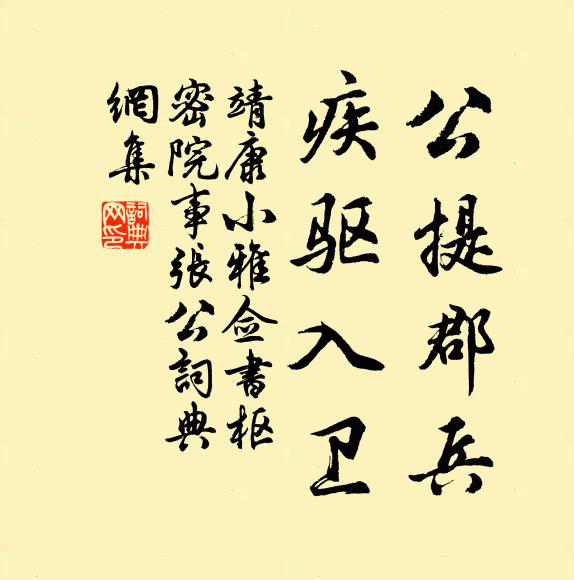 公提郡兵
疾驱入卫
靖康小雅佥书枢
密院事张公詞典
網集
詞典网印